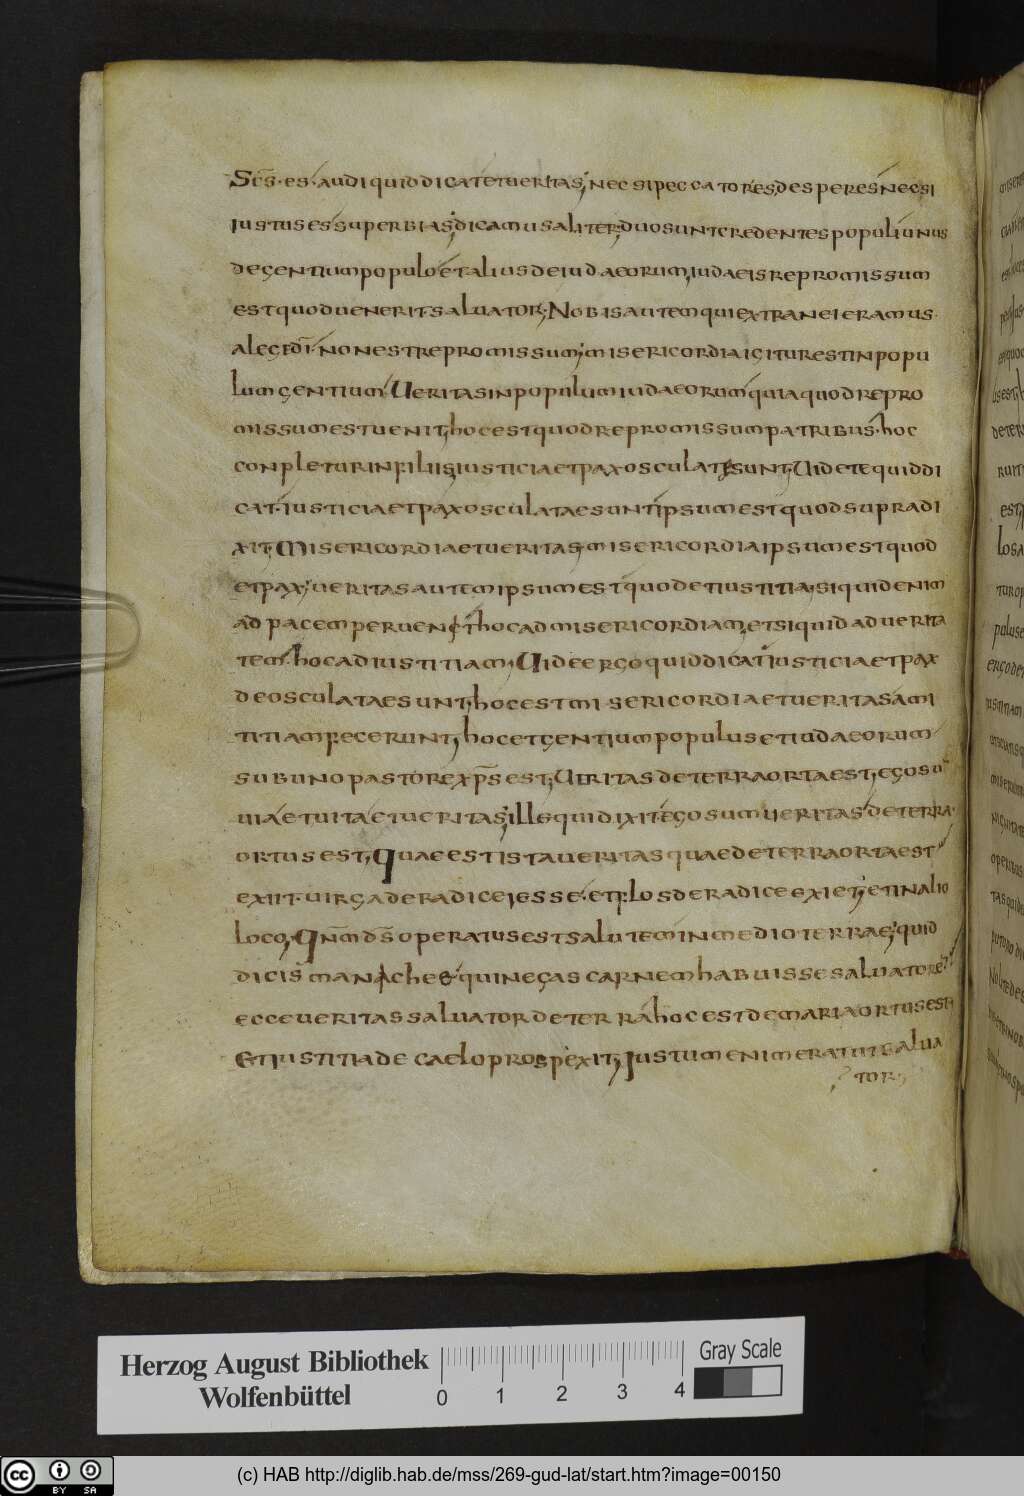 Sc̄s·es·audi quid dicat et ueritas; nec si peccator es, desperes nec si
iustus es superbias; dicamus aliter; duo sunt credentes populi unus
de gentium populo et alius de iudaeorum, iudaeis repromissum
est quod uenerit saluator; Nobis autem qui extranei eramus
a lege dī· non est repromissum; misericordia igitur est in popu
lum gentium· Ueritas in populum iudaeorum quia quod repro
missum est uenit, hoc est quod repromissum patribus· hoc
conpletur in filiis, iusticia et pax osculatę sunt; Uidete quid di
cat· iusticia et pax osculatae sunt ipsum est quod supra di
xit; Misericordia et ueritas· misericordia ipsum est quod
et pax; ueritas autem ipsum est quod et iustitia; si quid enim
ad pacem peruenęt hoc ad misericordiam, et si quid ad uerita
tem· hoc ad iustitiam; Uide ergo quid dicat iusticia et pax
deosculatae sunt, hoc est misericordia et ueritas ami
titiam fecerunt, hoc et gentium populus et iudaeorum
sub uno pastore xp̄s est; Ueritas de terra orta est, ego sū
uia et uita et ueritas; ille qui dixit ego sum ueritas de terra
ortus est; Quae est ista ueritas quae de terra orta est
exiit· uirga de radice iesse· et flos de radice exiet; et in alio
loco; Qn̄m dī operatus est salutem in medio terrae; quid
dicis manache· qui negas carnem habuisse saluatore
ecce ueritas saluator de terra hoc est de maria ortus est
Et iustitia de caelo prospexit; Iustum enim erat ut salua
tor
Herzog August Bibliothek
Wolfenbüttel
0 1 2 3 4
Gray Scale
cc BY SA
(c) HAB http://diglib.hab.de/mss/269-gud-lat/start.htm?image=00150